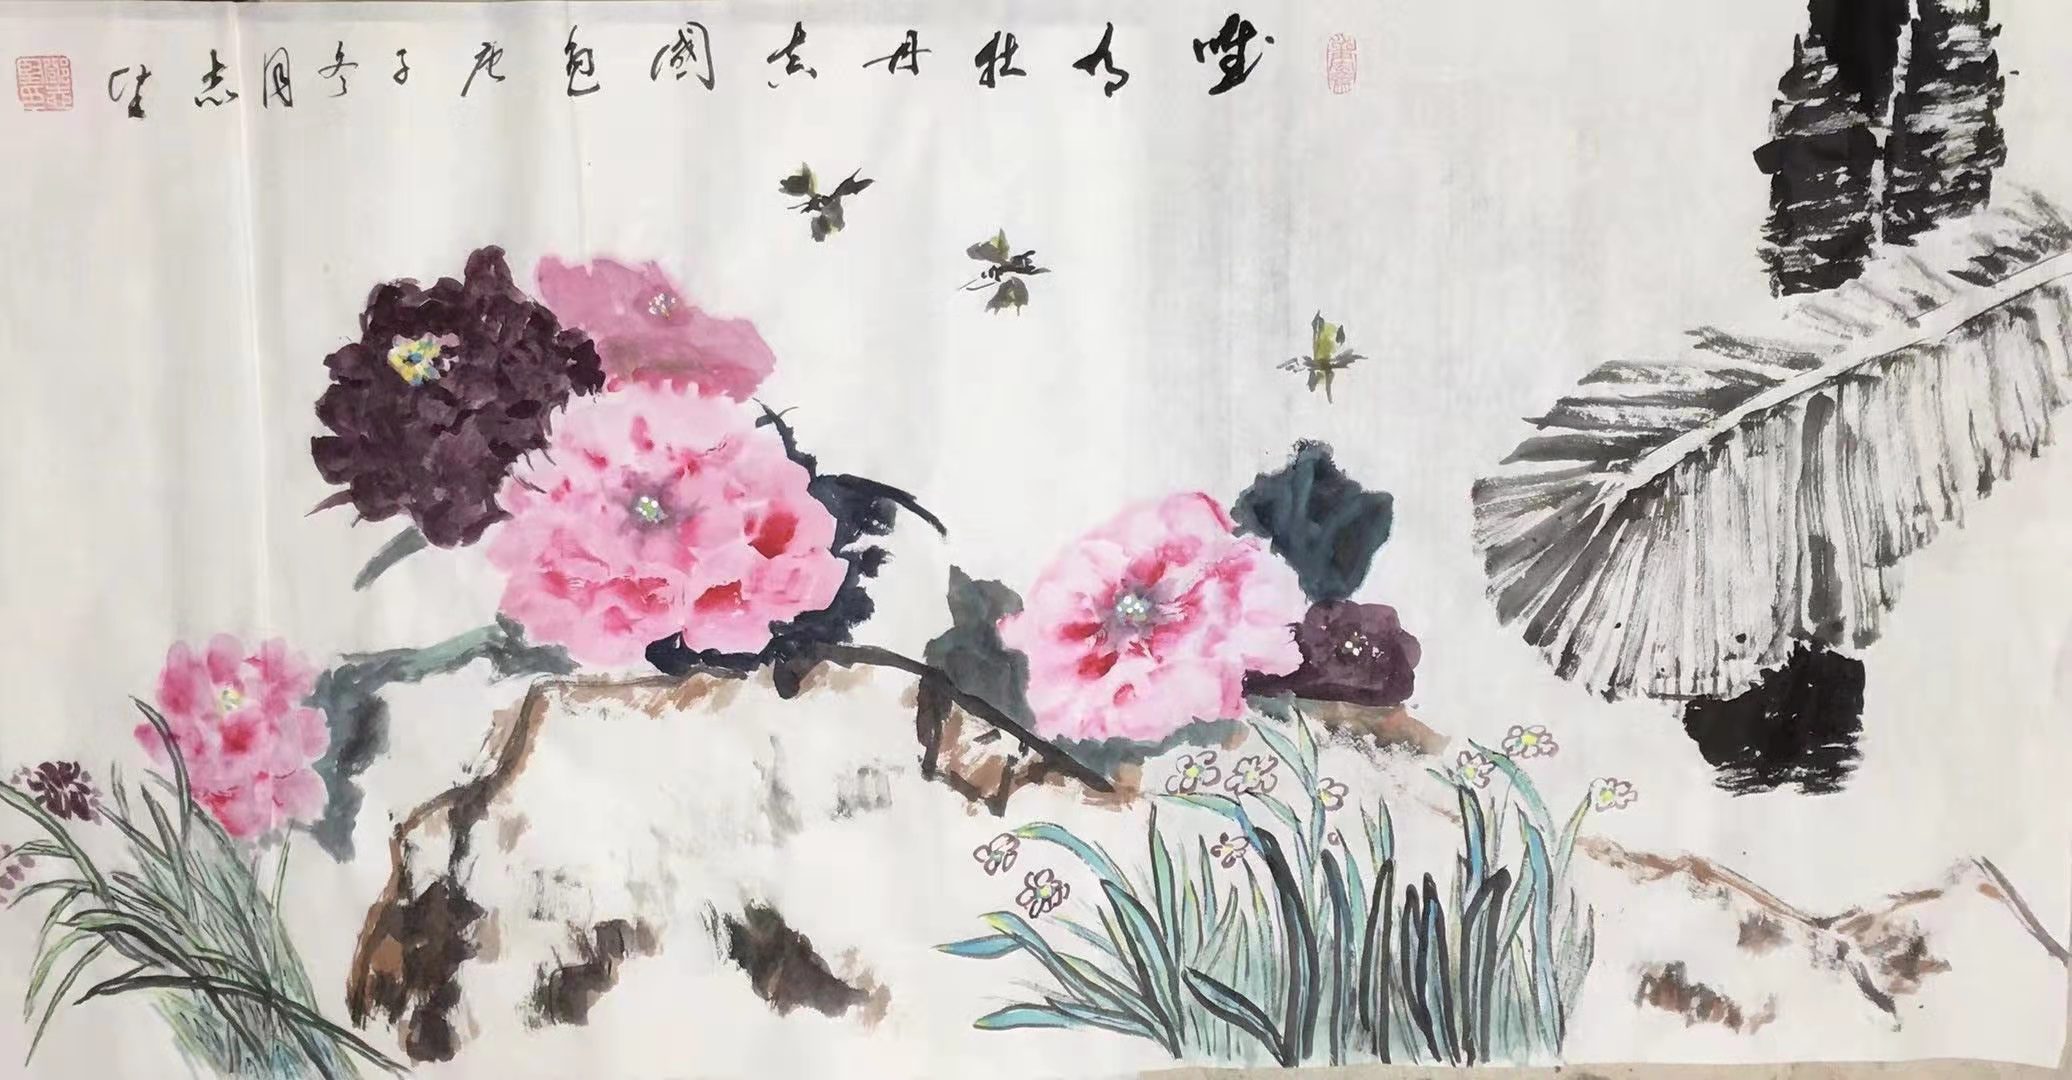 唯有牡丹真國色庚子冬月志